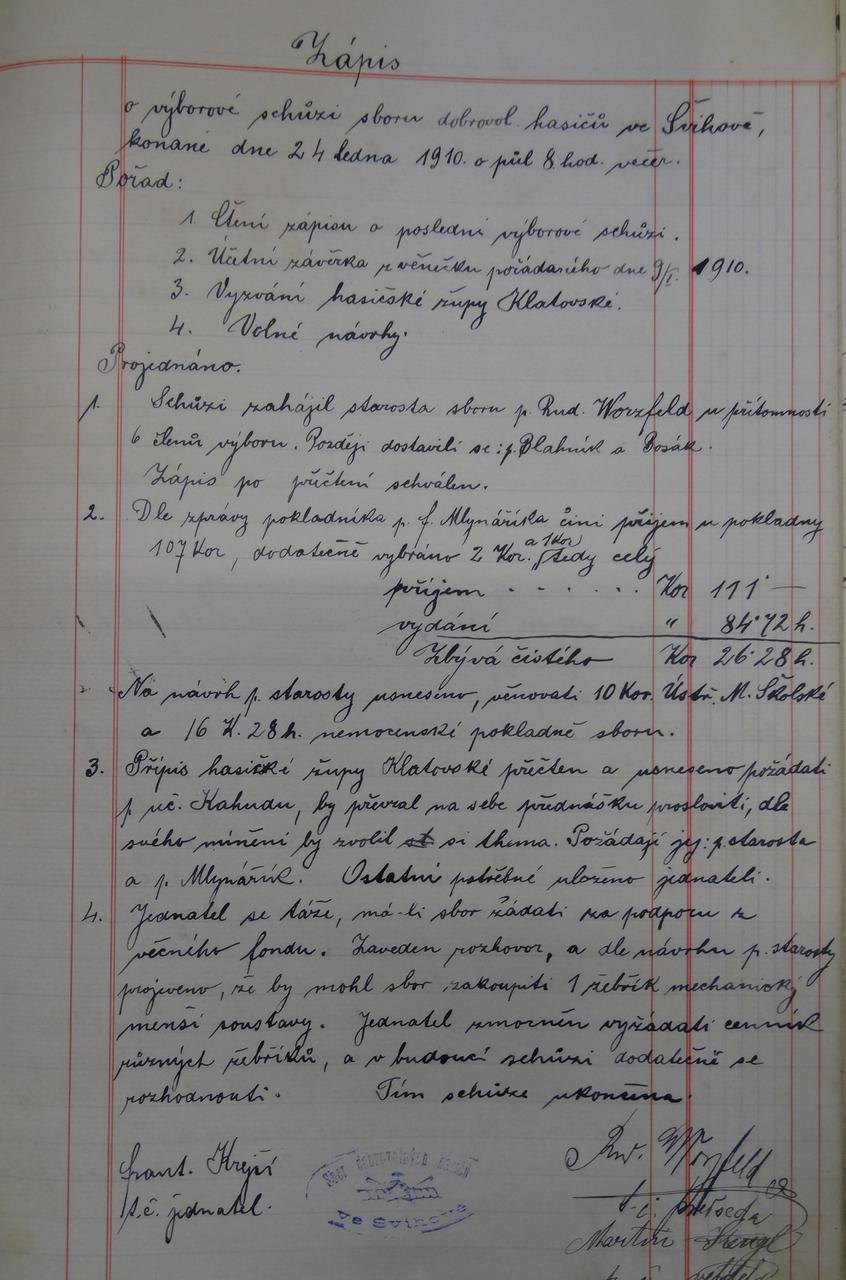 Zápis
o výborové schůzi sboru dobrovol. hasičů ve Švihově,
konané dne 24 ledna 1910. o půl 8. hod. večer.
Pořad:
1. Čtení zápisu o poslední výborové schůzi.
2. Účetní závěrka z věnečku pořádaného dne 9/I. 1910.
3. Vyzvání hasičské župy Klatovské.
4. Volné návrhy.
Projednáno.
1. Schůzi zahájil starosta sboru p. Rud. Worzfeld u přítomnosti
6 členů výboru. Později dostavili se: p. Blahník a Bosák.
Zápis po přečtení schválen.
2. Dle zprávy pokladníka p. f. Mlynáříka činí příjem u pokladny
107 Kor, dodatečně vybráno 2 Kor. a 1 Kor tedy celý
příjem . . . . . . Kor 111·—
vydání " 84·72 h.
Zbývá čistého Kor 26·28 h.
Na návrh p. starosty usneseno, věnovati 10 Kor. Ústř. M. Školské
a 16 K. 28 h. nemocenské pokladně sboru.
3. Přípis hasičké župy Klatovské přečten a usneseno požádati
p. uč. Kahudu, by převzal na sebe přednášku prosloviti, dle
svého mínění by zvolil si thema. Požádají jej: p. starosta
a p. Mlynářík. Ostatní potřebné uloženo jednateli.
4. Jednatel se táže, má-li sbor žádati za podporu z
věcného fondu. Zaveden rozhovor, a dle návrhu p. starosty
projeveno, že by mohl sbor zakoupiti 1 žebřík mechanický
menší soustavy. Jednatel zmocněn vyžádati cenník
různých žebříků, a v budoucí schůzi dodatečně se
rozhodnouti. Tím schůze ukončena.
frant. Krejčí
t.č. jednatel.
Sbor dobrovolných hasičů
ve Švihově
Rud. Worzfeld
t. č. předseda
Martin